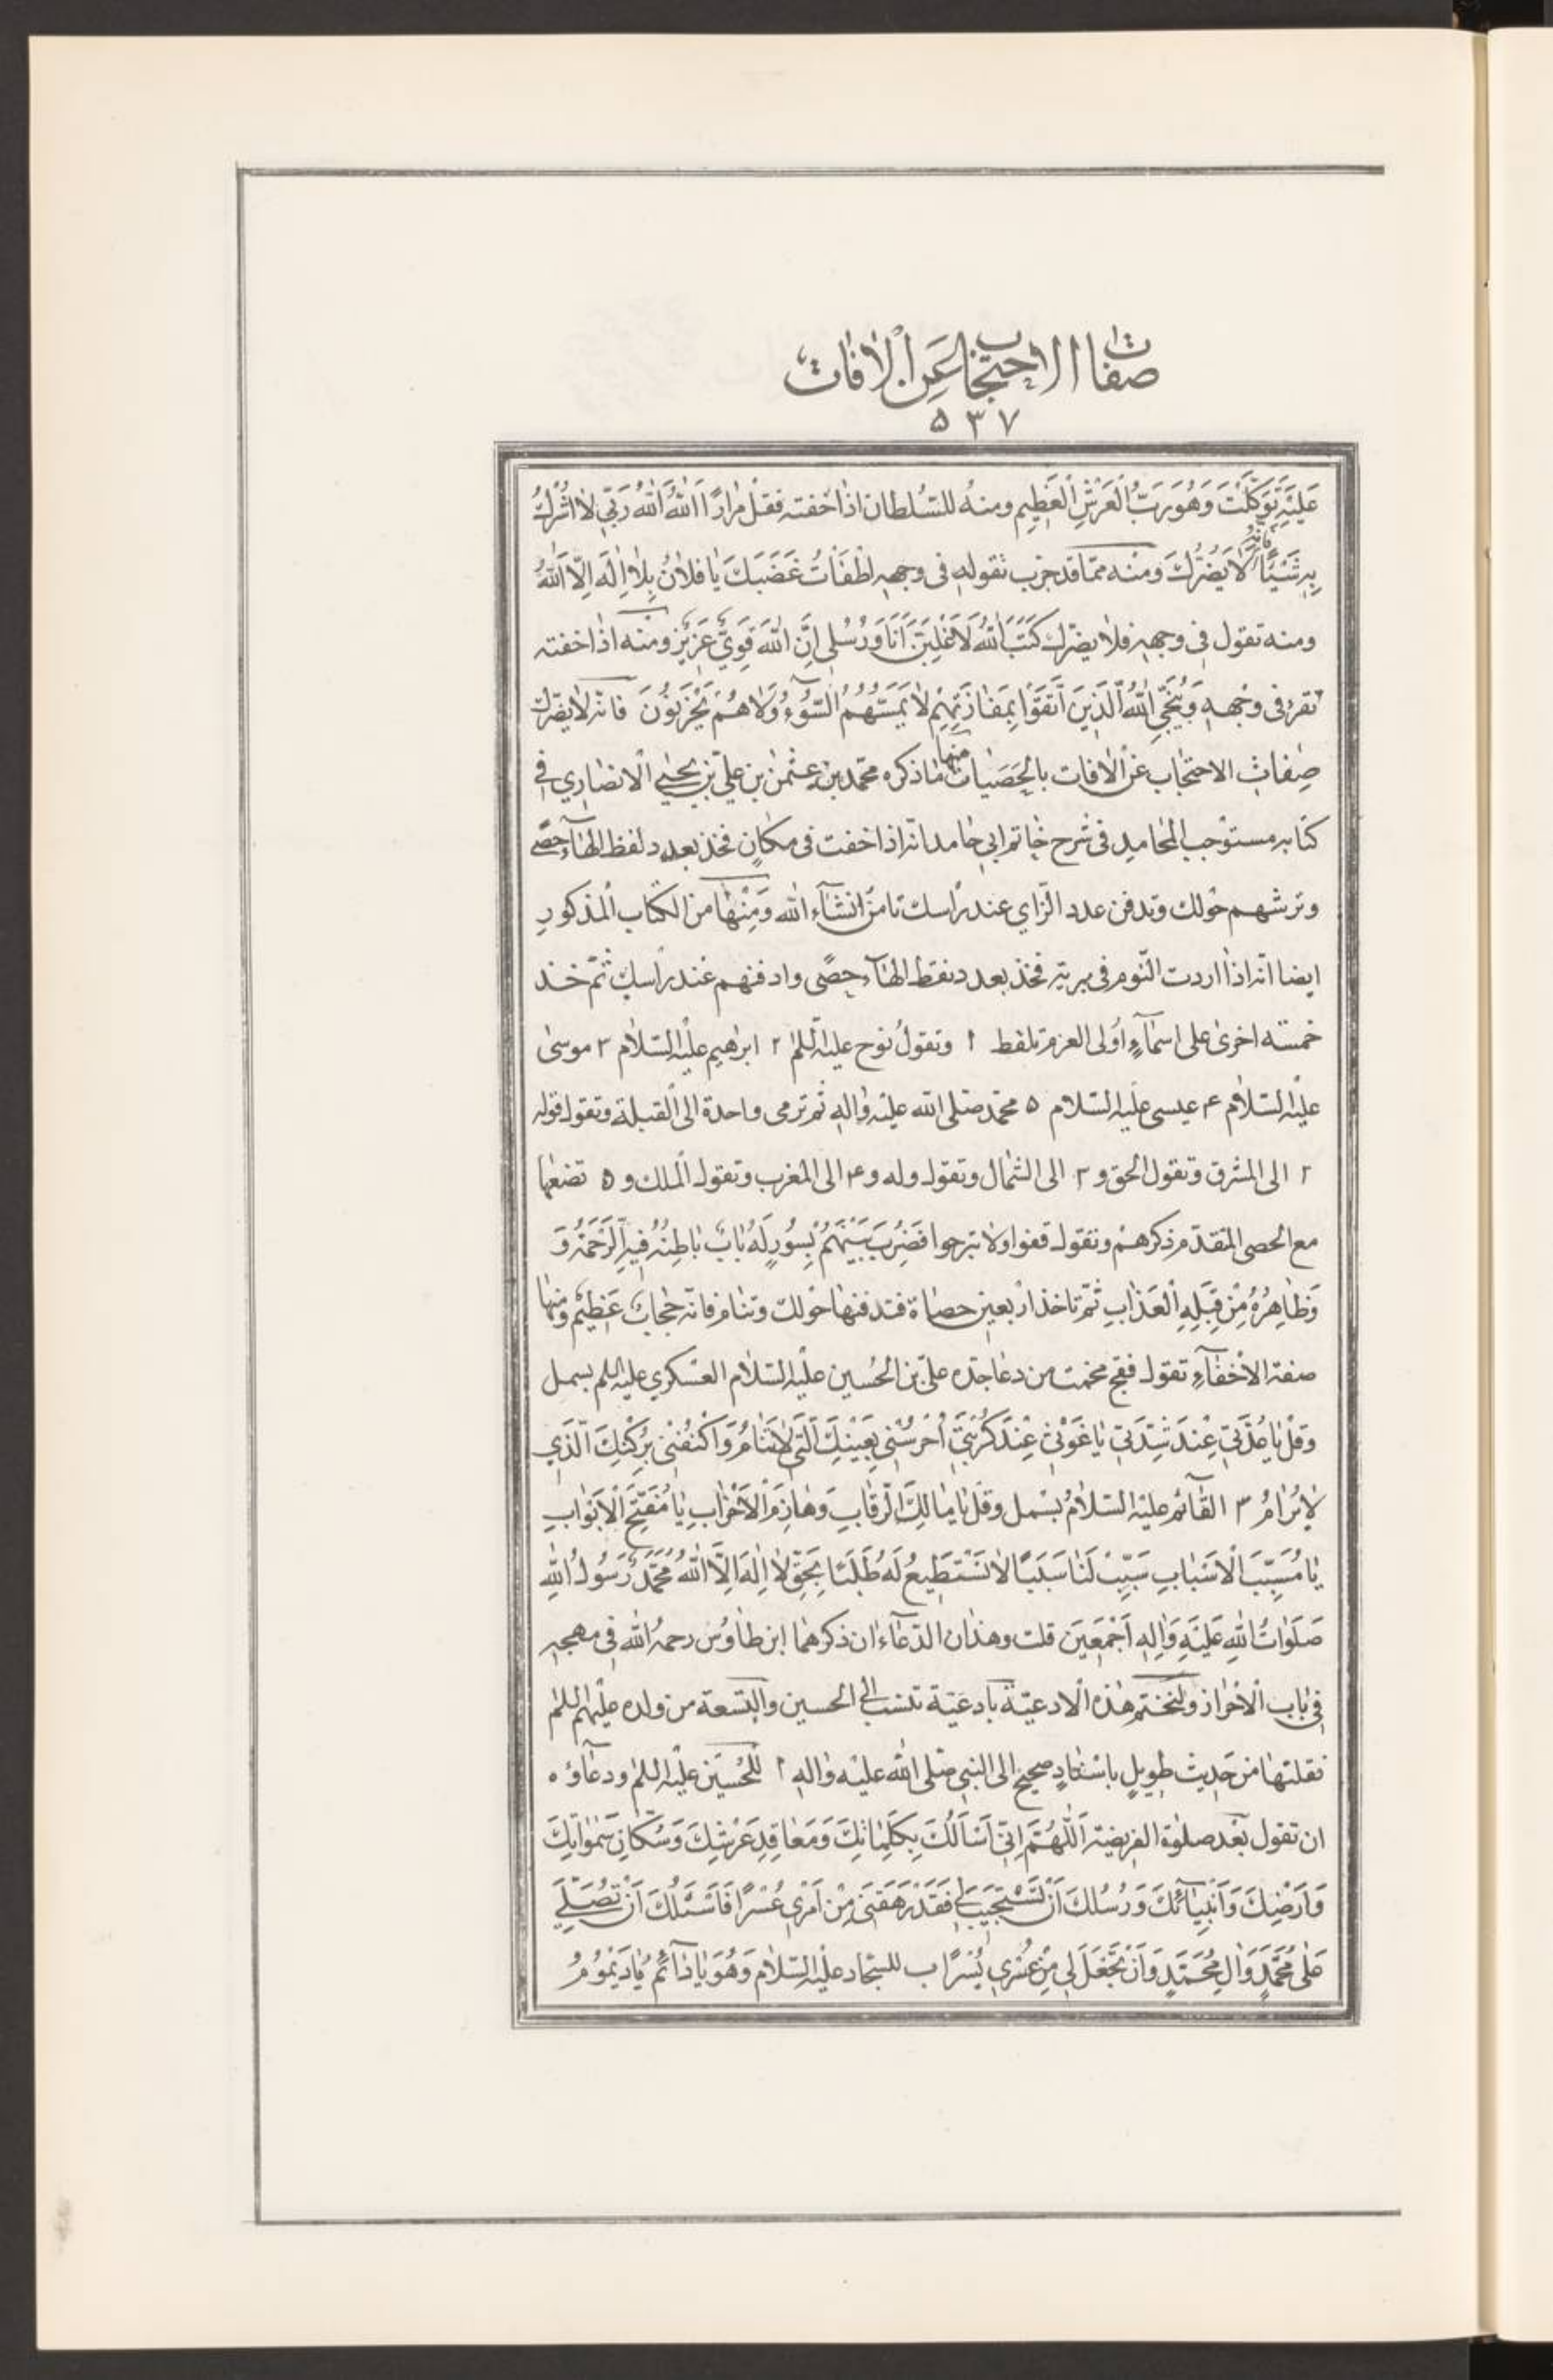 صفات الاحتجاب عَنِ الْاٰفات
۵۳۷
عَلَيْهِ تَوَكَّلْتُ وَهُوَ رَبُّ الْعَرْشِ الْعَظِيمِ ومنه للسُلطان اذا خفته فقل مرارًا اَللّٰهُ اَللّٰهُ رَبّى لا اُشْرِكُ
بِهِ شَيْئًا فانه لا يَضُرُّكَ ومنه ممّا قد جرب تقوله فى وجهه اطْفَأْتُ غَضَبَكَ يا فلانُ بِلا اِلٰهَ اِلَّا اللّٰهُ
ومنه تقول فى وجهه فلا يضرّك كَتَبَ اللّٰهُ لَاَغْلِبَنَّ اَنَا وَرُسُلى اِنَّ اللّٰهَ قَوِىٌّ عَزِيزٌ ومنه اذا خفته
تقرء فى وجهه وَيُنَجِّى اللّٰهُ الَّذِينَ اتَّقَوْا بِمَفازَتِهِمْ لا يَمَسُّهُمُ السُّوٓءُ وَلا هُمْ يَحْزَنُونَ فانه لا يضرّك
صِفات الاحتجاب عن الافات بالحصيات منها ما ذكره محمّد بن عثمٰن بن علىّ بن يحيى الانصارى فى
كتابه مستوجب المحامد فى شرح خاتم ابى حامد انّه اذا خفت فى مكان فخذ بعدد لفظ الهآء حصًى
وترشهم حولك وتدفن عدد الزاى عند راسك تامن انشآء الله وَمِنْها من الكتاب المذكور
ايضا انّه اذا اردت النّوم فى بريّة فخذ بعدد نقط الهآء حِصًى وادفنهم عند راسك ثمّ خذ
خمسة اخرى على اسمآء اولى العزم تلفظ ۱ وتقول نوح عليه السلم ۲ ابرهيم عليه السلام ۳ موسى
عليه السلام ۴ عيسى عليه السلام ۵ محمّد صلى الله عليه واله ثم ترمى واحدة الى القبلة وتقول قوله
۲ الى المشرق وتقول الحق و ۳ الى الشمال وتقول وله و ۴ الى المغرب وتقول الملك و ۵ تضعها
مع الحصى المتقدّم ذكرهم وتقول قفوا ولا تبرحوا فَضُرِبَ بَيْنَهُمْ بِسُورٍ لَهُ بابٌ باطِنُهُ فِيهِ الرَّحْمَةُ وَ
وَظاهِرُهُ مِنْ قِبَلِهِ الْعَذابُ ثمّ تاخذ اربعين حصاة فتدفنها حولك وتنام فانّه حجاب عَظيمٌ ومنها
صفة الاخفآء تقول فقج مخمت من دعا جدّه علىّ بن الحُسين عليه السلام العسكرى عليه السلم بسمل
وقل يا عُدَّتى عِنْدَ شِدَّتى يا غَوْثى عِنْدَ كُرْبَتى اُحْرُسْنى بِعَيْنِكَ الَّتى لا تَنامُ وَاكْنُفْنى بِرُكْنِكَ الَّذى
لا يُرامُ ۳ القآئم عليه السلام بسمل وقل يا مالِكَ الرِّقابِ وَهازِمَ الْاَحْزابِ يا مُفَتِّحَ الْاَبْوابِ
يا مُسَبِّبَ الْاَسْبابِ سَبِّبْ لَنا سَبَبًا لا نَسْتَطيعُ لَهُ طَلَبًا بِحَقِّ لا اِلٰهَ اِلَّا اللّٰهُ مُحَمَّدٌ رَسُولُ اللّٰهِ
صَلَواتُ اللّٰهِ عَلَيْهِ وَاٰلِهِ اَجْمَعينَ قلت وهذان الدّعاءان ذكرهما ابن طاوُس رحمه الله فى مهجه
فى باب الاحراز ولنختم هذه الادعيّة بادعيّة تنسب الى الحسين والتسعة من ولده عليهم السلم
نقلتها من حَديث طويلٍ باسْنادٍ صحيح الى النبى صلى الله عليه واله ۱ للحُسَيْن عليه السلم ودعاؤه
ان تقول بعد صلوة الفريضة اَللّٰهُمَّ اِنّى اَسْاَلُكَ بِكَلِماتِكَ وَمَعاقِدِ عَرْشِكَ وَسُكّانِ سَمٰواتِكَ
وَاَرْضِكَ وَاَنْبِيآئِكَ وَرُسُلِكَ اَنْ تَسْتَجيبَ لى فَقَدْ رَهَقَنى مِنْ اَمْرى عُسْرًا فَاَسْئَلُكَ اَنْ تُصَلِّىَ
عَلى مُحَمَّدٍ وَاٰلِ مُحَمَّدٍ وَاَنْ تَجْعَلَ لى مِنْ عُسْرى يُسْرًا ب للسجّاد عليه السلام وَهُوَ يا دآئمُ يا دَيْمُومُ